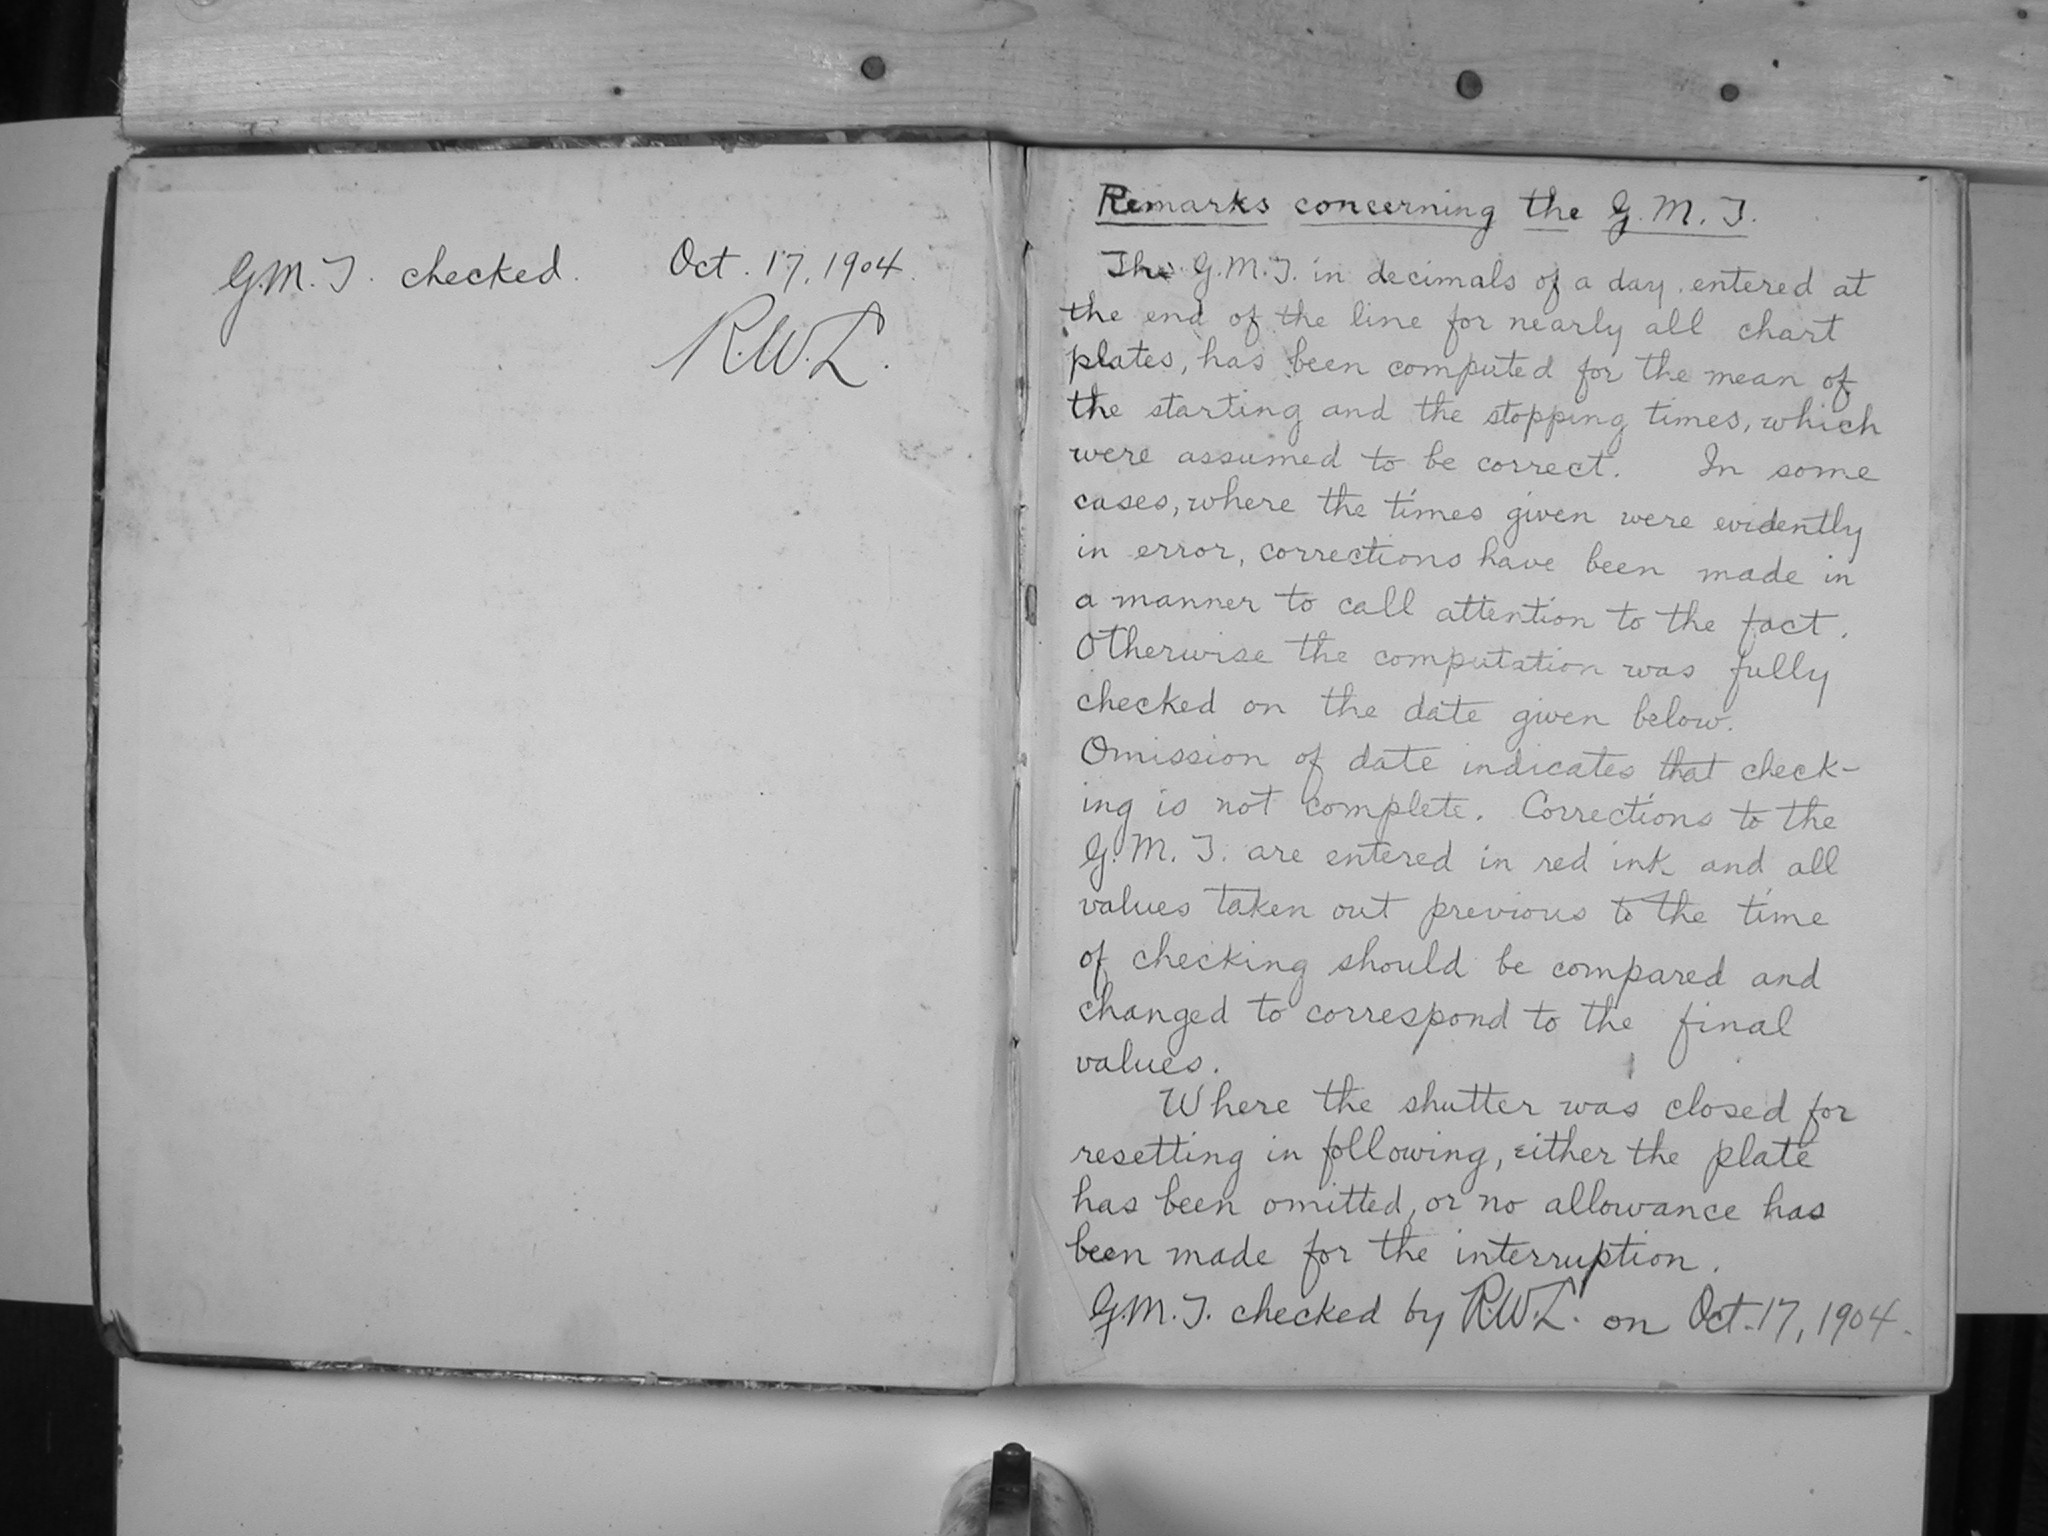 G.M.T. checked. Oct. 17, 1904.
R.W.L.
Remarks concerning the G.M.T.
The G.M.T. in decimals of a day, entered at
the end of the line for nearly all chart
plates, has been computed for the mean of
the starting and the stopping times, which
were assumed to be correct. In some
cases, where the times given were evidently
in error, corrections have been made in
a manner to call attention to the fact.
Otherwise the computation was fully
checked on the date given below.
Omission of date indicates that check-
ing is not complete. Corrections to the
G.M.T. are entered in red ink and all
values taken out previous to the time
of checking should be compared and
changed to correspond to the final
values.
Where the shutter was closed for
resetting in following, either the plate
has been omitted, or no allowance has
been made for the interruption.
G.M.T. checked by R.W.L. on Oct. 17, 1904.